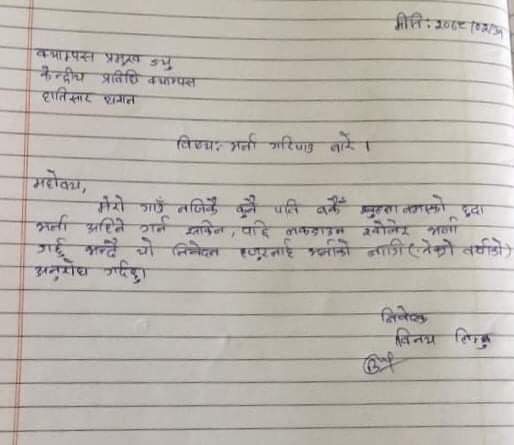 मीति: २०७८/०२/
क्याम्पस प्रमुख ज्यु
केन्द्रीय प्रविधि क्याम्पस
हात्तिसार धरान
विषय: भर्ना गरिपाउ बारे ।
महोदय,
मेरो गाउँ नजिकै कुनै पनि बैकँ हुदा
भर्ना अहिले गर्न सकिन, पछि लकडाउन खोलेर भर्ना
गर्छु भन्दै यो निवेदन हजुरलाई भर्नाको लागि (तेस्रो वर्षको)
अनुरोध गर्दछु।
निवेदक
विनय लिम्बु